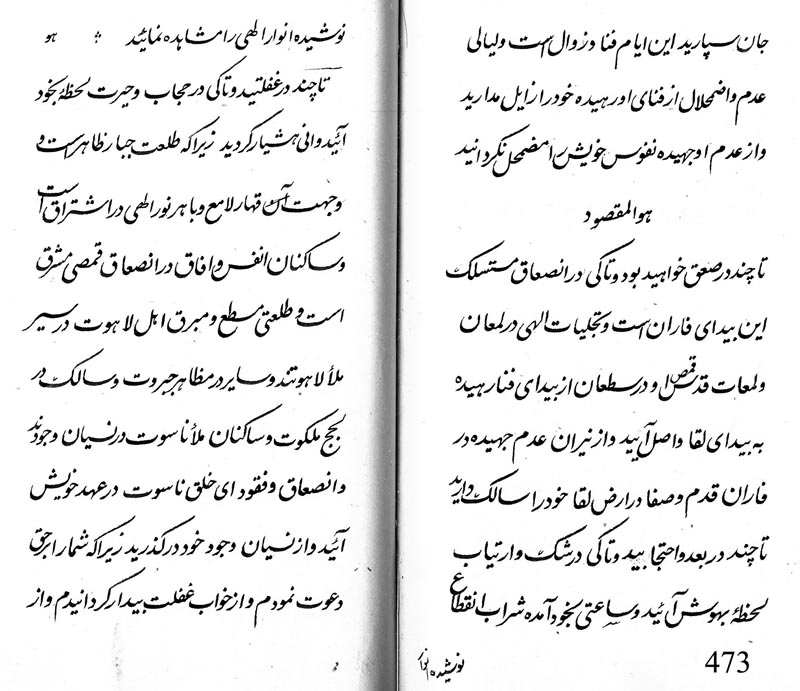 جان سپارید این ایام فنا و زوال است و لیالی
عدم و اضمحلال از فنای او رهیده خود را زایل مدارید
و از عدم او جهیده نفوس خویش را مضمحل نگردانید
هو المقصود
تا چند در صعق خواهید بود و تا کی در انصعاق مستسلک
این بیدای فاران است و تجلیات الهی در لمعان
و لمعات قدس قمص او در سطعان از بیدای فنا رهیده
به بیدای لقا واصل آیید و از نیران عدم جهیده در
فاران قدم و صفا در ارض لقا خود را سالک دارید
تا چند در بعد و احتجابید و تا کی در شک و ارتیاب
لحظهٔ بهوش آئید و ساعتی بخود آمده شراب انقطاع
نوشیده انوار
473
نوشیده انوار الهی را مشاهده نمائید هو
تا چند در غفلتید و تا کی در حجاب و حیرت لحظهٔ بخود
آئید و انی هشیار گردید زیرا که طلعت جبار ظاهر است و
وجهت آن قهار لامع و باهر نور الهی در اشتراق است
و ساکنان انفس و افاق در انصعاق قمصی مشرق
است و طلعتی مسطع و مبرق اهل لاهوت در سیر
ملأ لاهوتند و سایر در مظاهر جبروت و سالک در
لجج ملکوت و ساکنان ملأ ناسوت در نسیان وجودند
و انصعاق و فقود ای خلق ناسوت در عهد خویش
آئید و از نسیان وجود خود در گذرید زیرا که شما را بحق
دعوت نمودم و از خواب غفلت بیدار گردانیدم و از